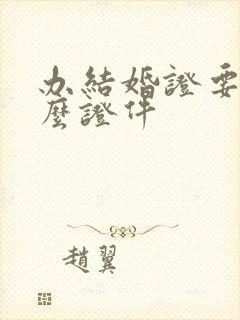 办結婚證要
麼證件
趙翼